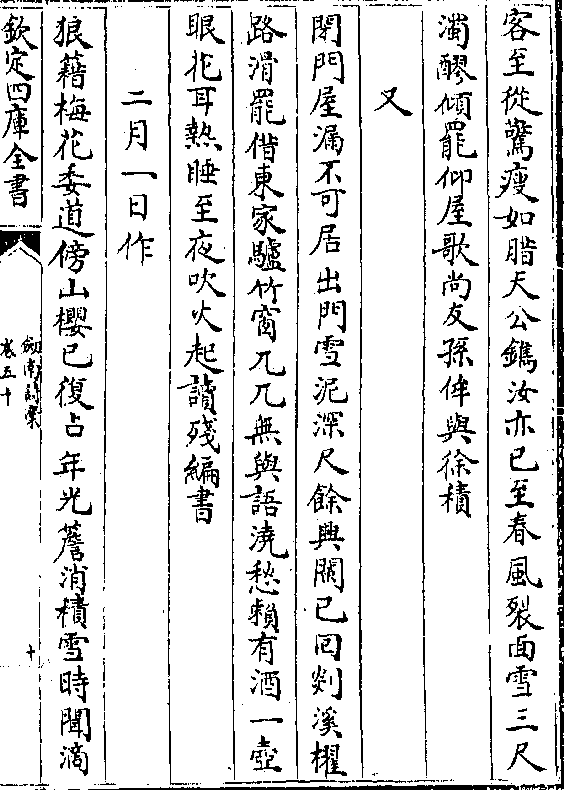 客至從驚瘦如腊天公鐫汝亦已至春風裂面雪三尺
濁醪傾罷仰屋歌尚友孫侔與徐積
又
閉門屋漏不可居出門雪泥深尺餘興闌已囘剡溪櫂
路滑罷借東家驢竹窗兀兀無與語澆愁賴有酒一壺
眼花耳熱睡至夜吹火起讀殘編書
二月一日作
狼藉梅花委道傍山櫻已復占年光簷消積雪時聞滴
欽定四庫全書
劍南詩稾
卷五十
十